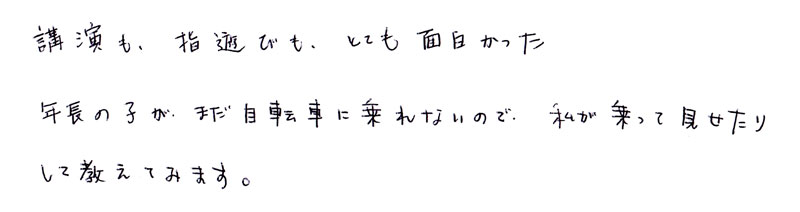 講演も、指遊びも、とても面白かった
年長の子が、まだ自転車に乗れないので、私が乗って見せたり
して教えてみます。